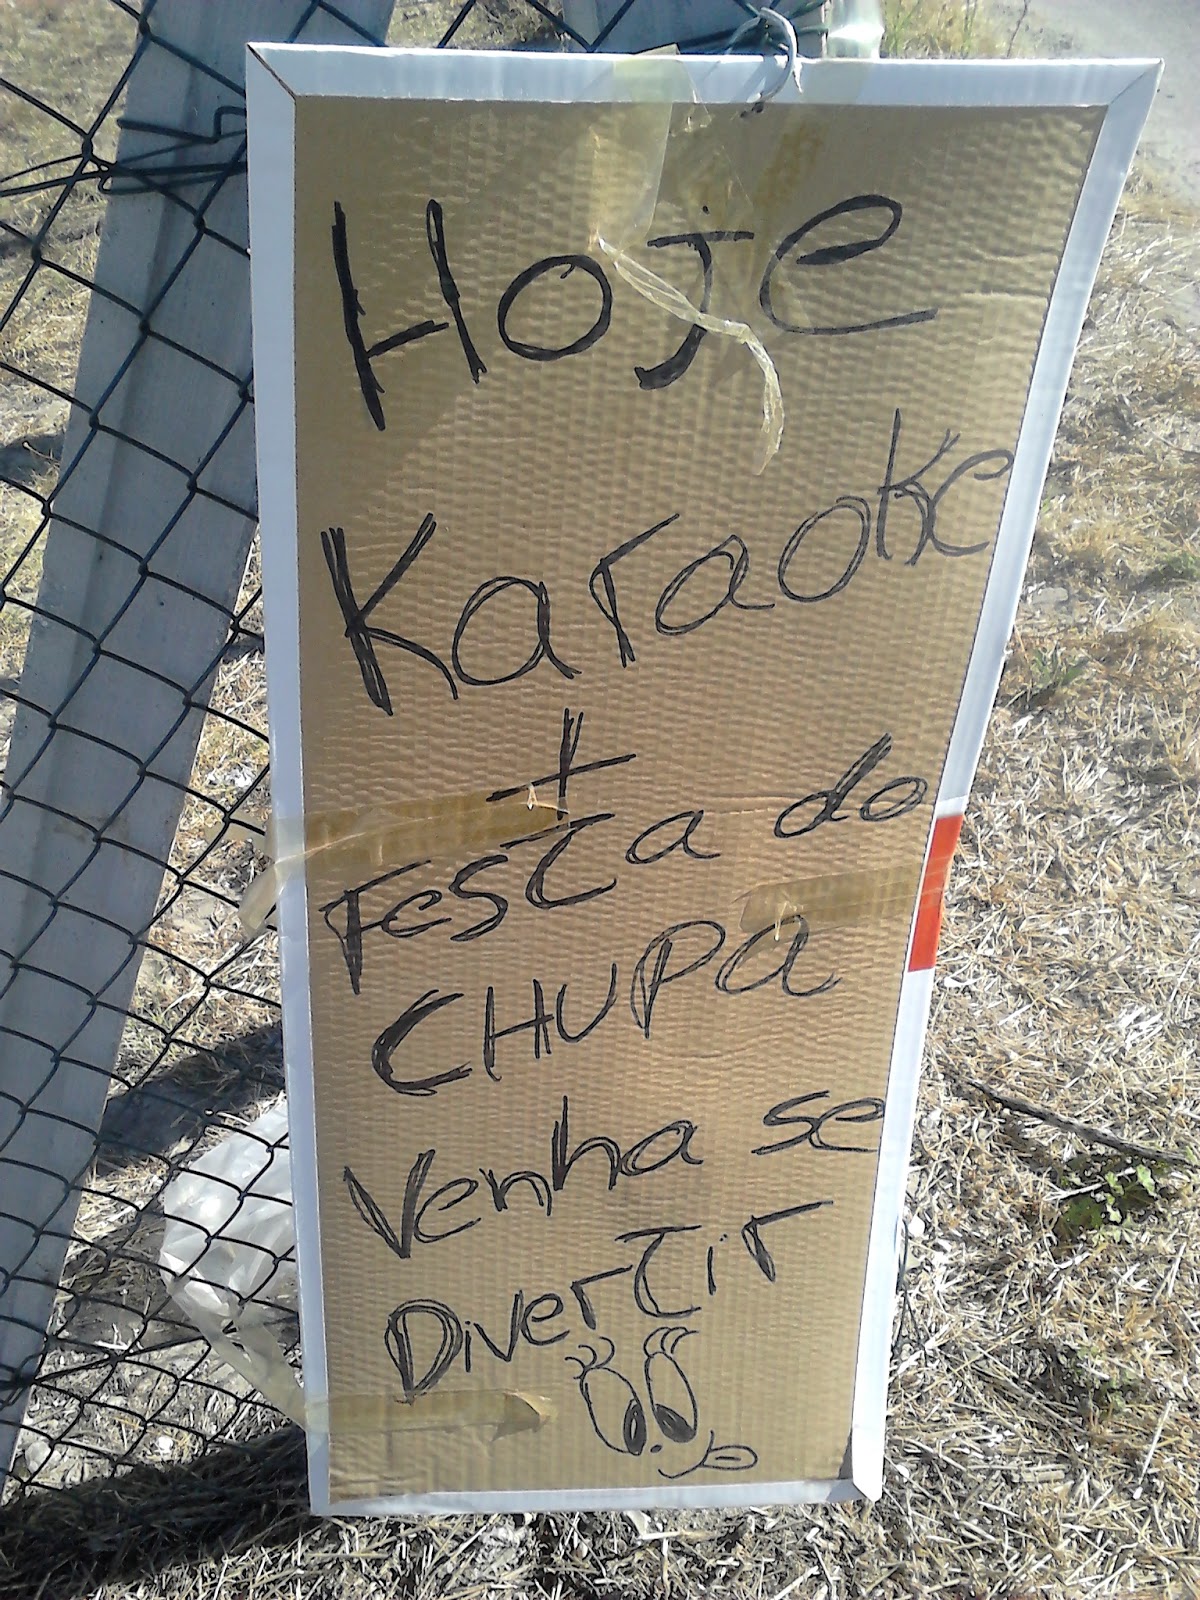 Hoje
Karaoke
+
Festa do
CHUPA
Venha se
Divertir